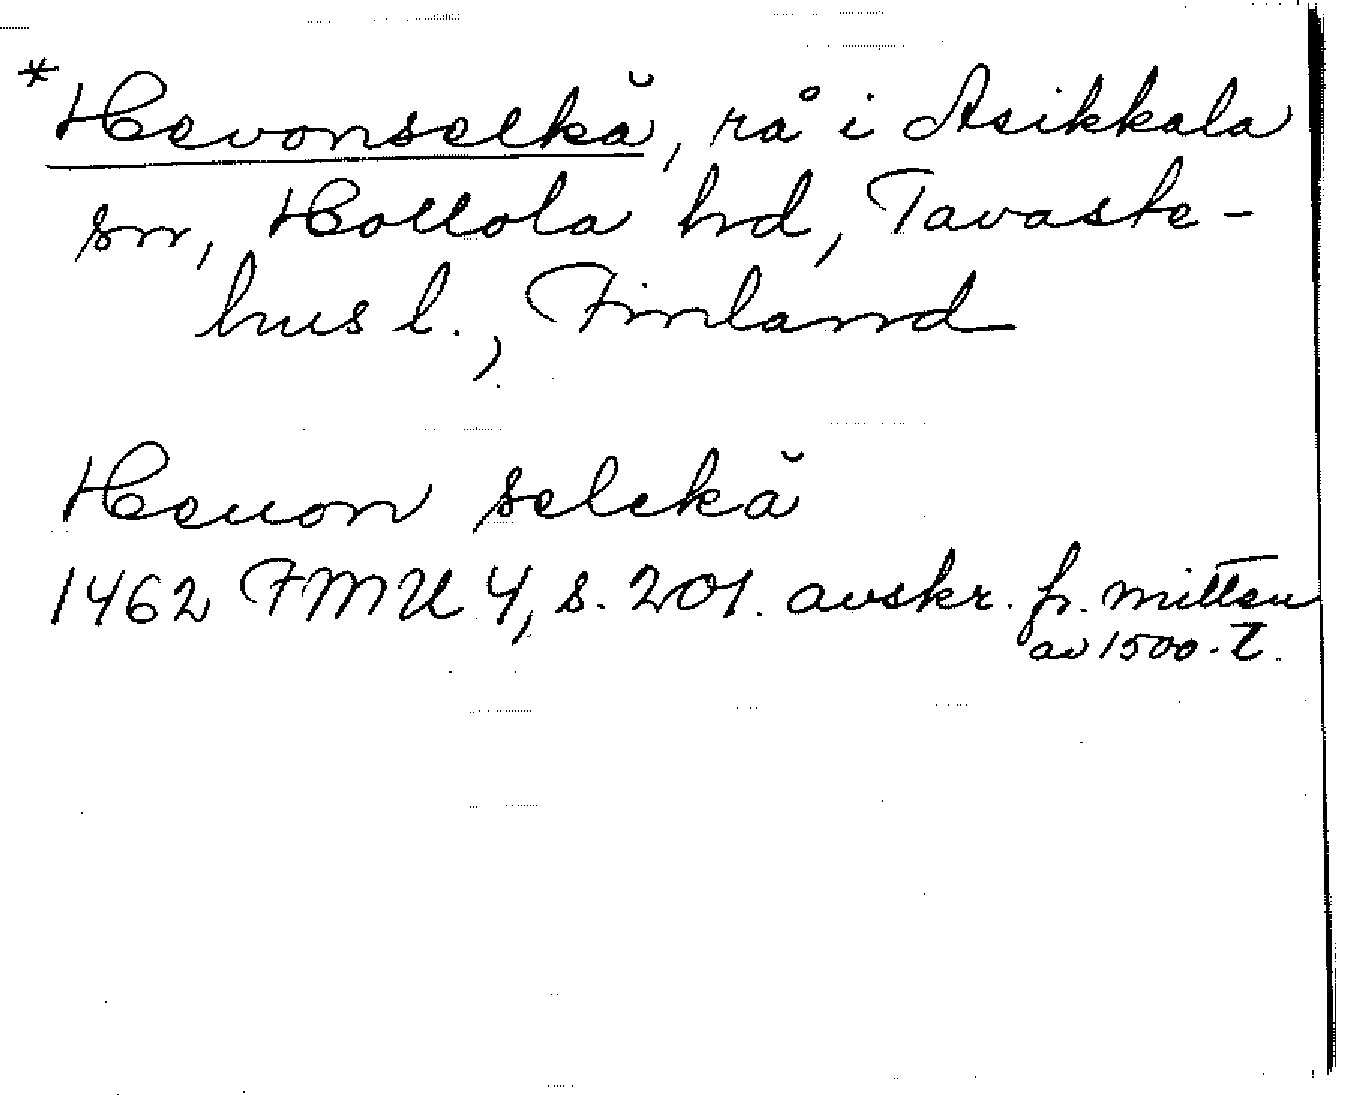 *Hevonselkä, rå i Asikkala
sn, Hollola hd, Tavaste-
hus l., Finland
Heuon selckä
1462 FMU 4, s. 201. avskr. fr. mitten
av 1500-t.